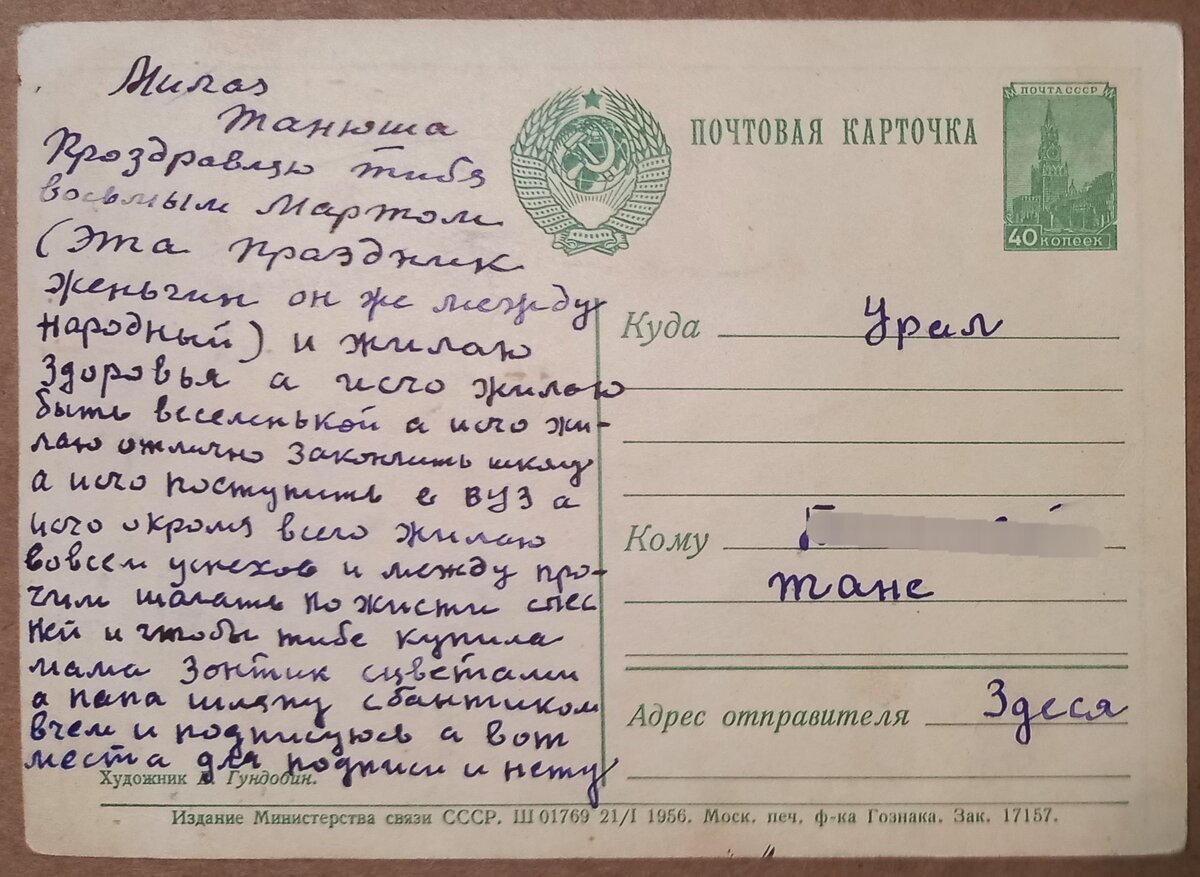 Милая
Танюша
Проздравляю тибя
восьмым Мартом
(Эта праздник
женьчин он же между
народный) и жилаю
здоровья а исчо жилаю
быть веселенькой а исчо жи-
лаю отлично закончить школу
а исчо поступить в ВУЗ а
исчо окромя всего жилаю
вовсем успехов и между про-
чим шагать по жисти спес
ней и чтобы тибе купила
мама зонтик сцветами
а папа шляпу сбантиком
вчем и подписуюсь а вот
места для подписи и нету
ПОЧТОВАЯ КАРТОЧКА
ПОЧТА СССР
40 КОПЕЕК
Куда Урал
Кому
Тане
Адрес отправителя Здеся
Художник А. Гундобин.
Издание Министерства связи СССР. Ш 01769 21/I 1956. Моск. печ. ф-ка Гознака. Зак. 17157.